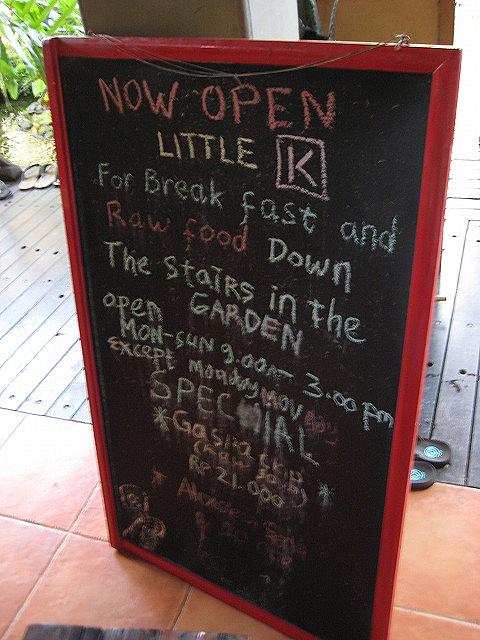 NOW OPEN
LITTLE K
For Break fast and
Raw food Down
The stairs in the
open GARDEN
MON-SUN 9.00am- 3.00 pm
except monday
SPECIAL
*Gaspacho
RP 21.000